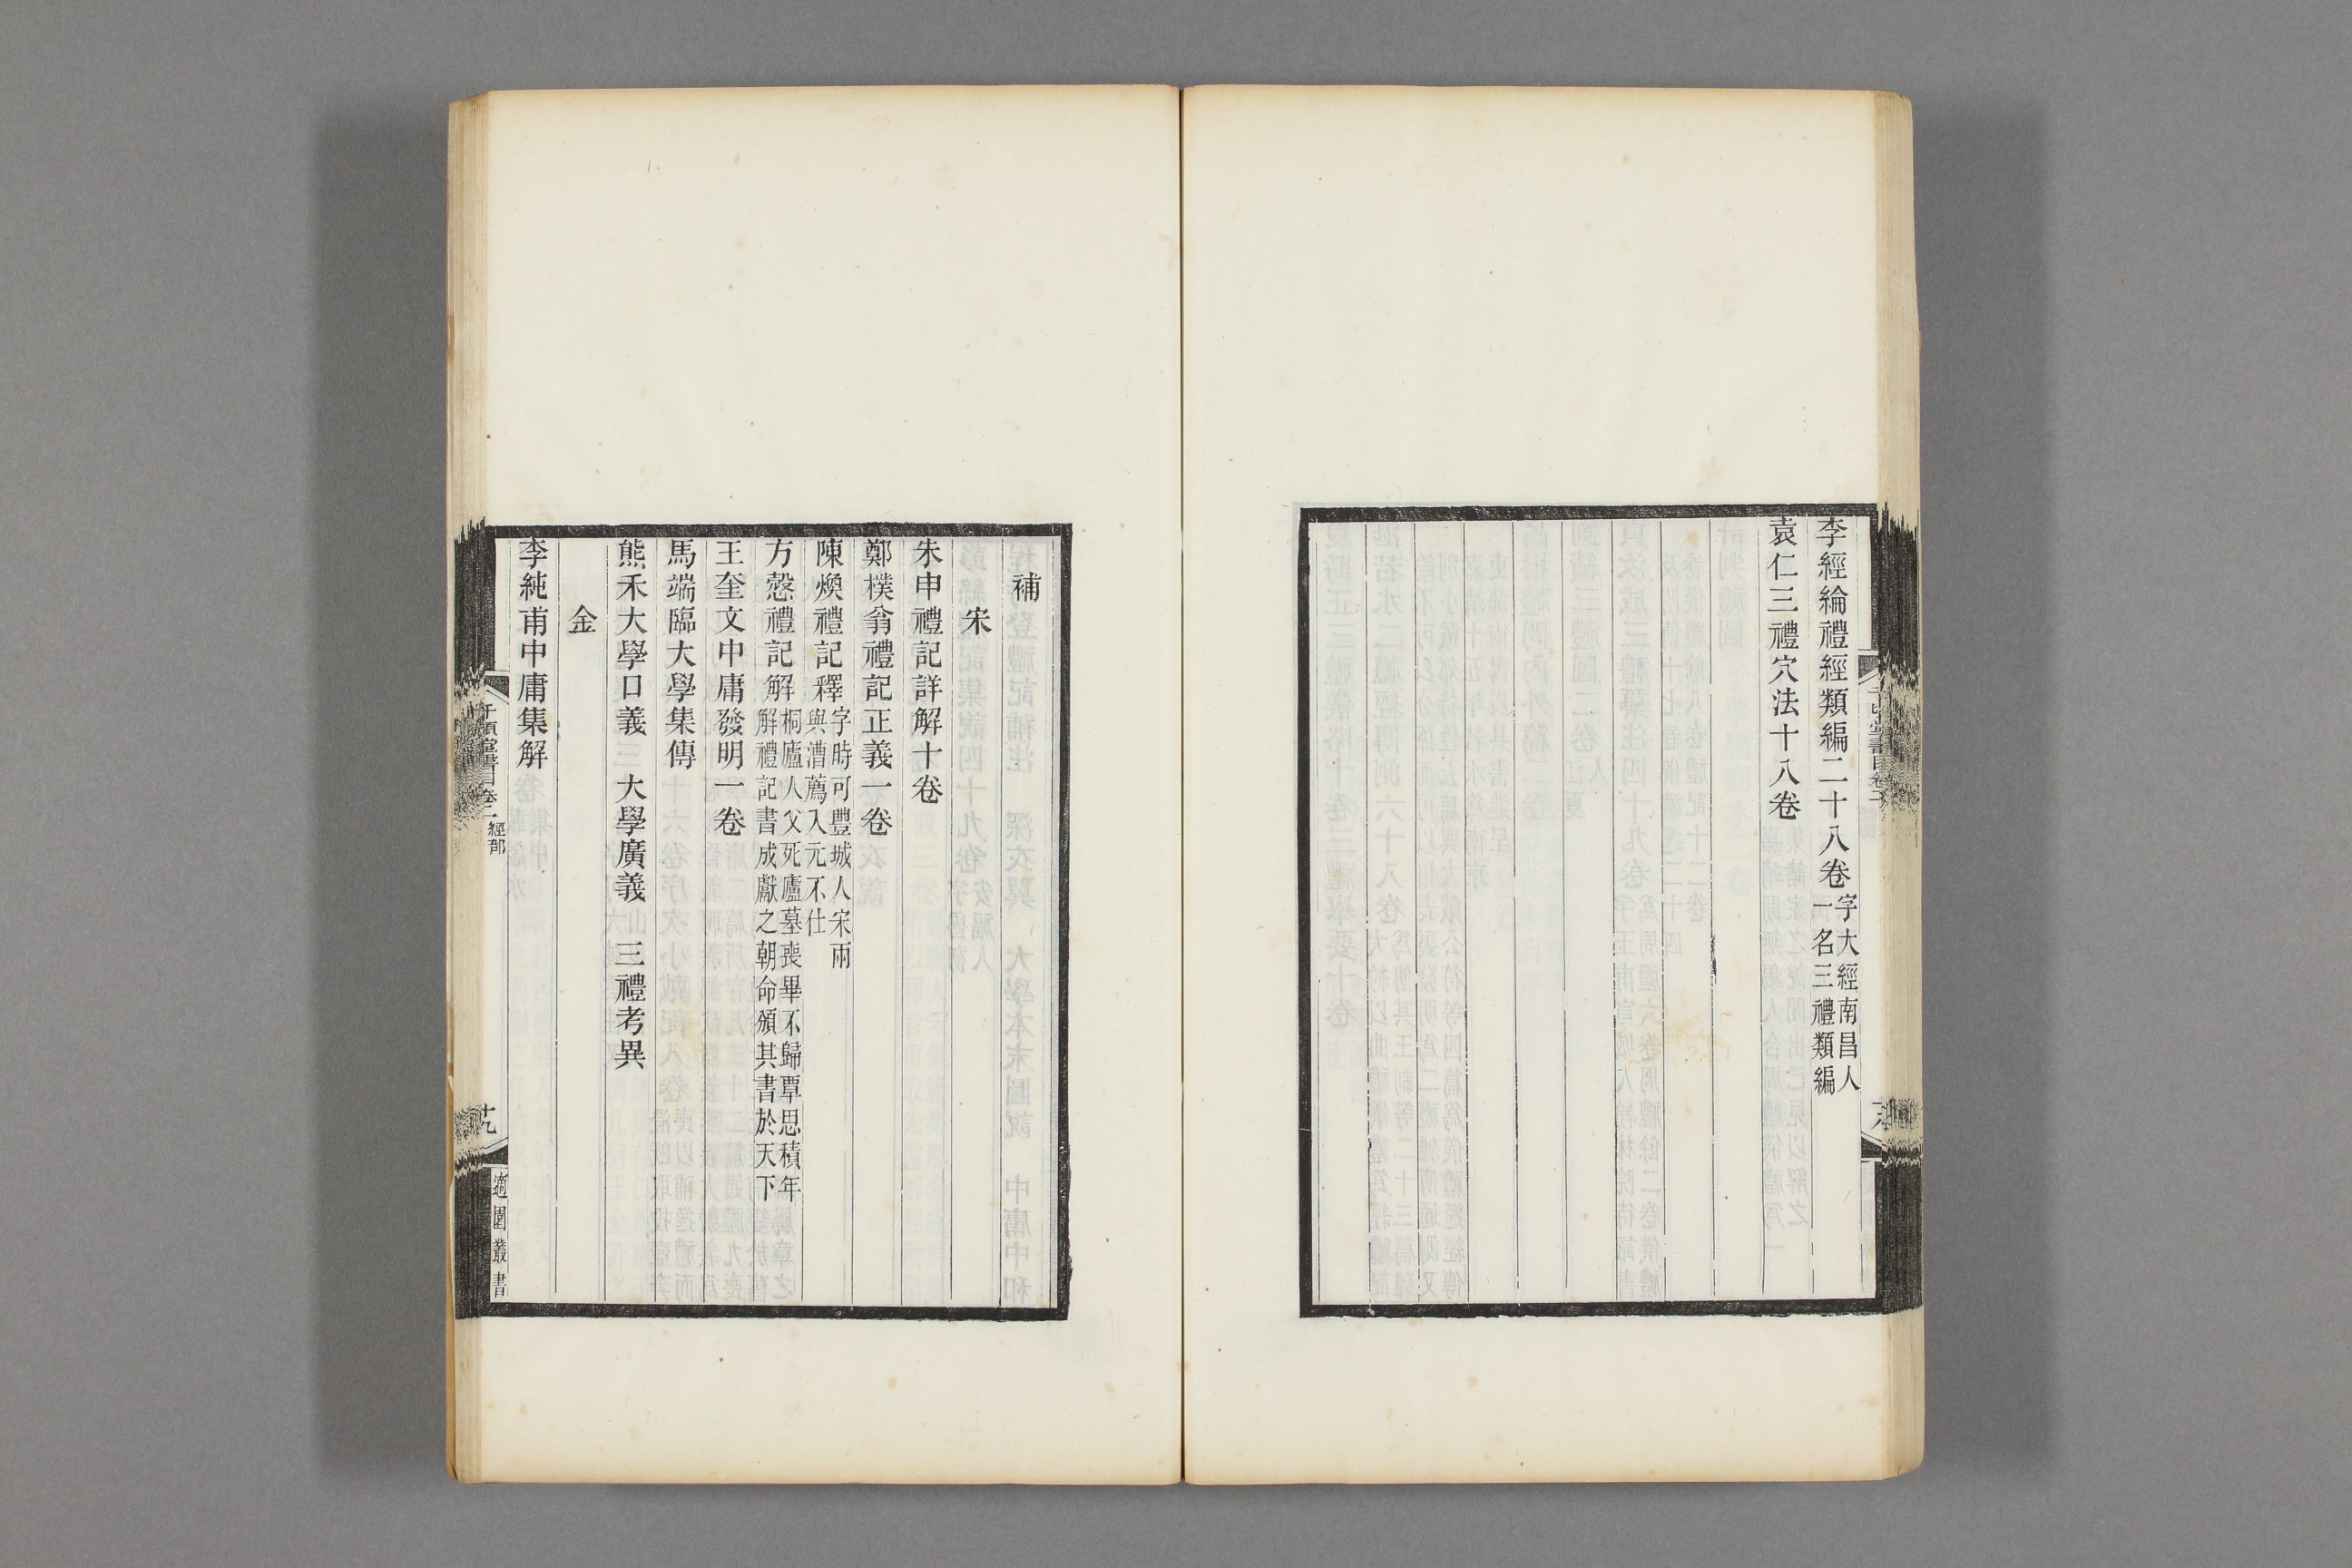 李經綸禮經類編二十八卷字大經南昌人一名三禮類編
袁仁三禮穴法十八卷
補
宋
朱申禮記詳解十卷
鄭樸翁禮記正義一卷
陳煥禮記釋字時可豐城人宋兩與漕薦入元不仕
方慤禮記解桐廬人父死廬墓喪畢不歸覃思積年解禮記書成獻之朝命頒其書於天下
王奎文中庸發明一卷
馬端臨大學集傳
熊禾大學口義　大學廣義　三禮考異
金
李純甫中庸集解
千頃堂書目卷二 經部
十九
適園叢書